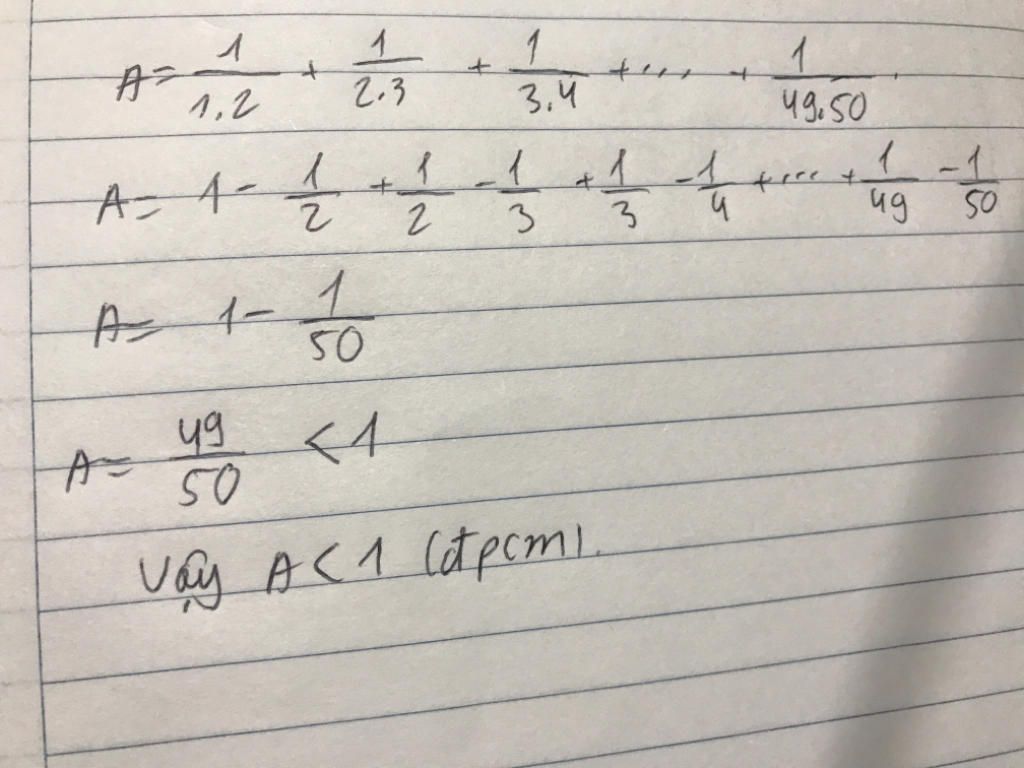 A = 1/1.2 + 1/2.3 + 1/3.4 + .... + 1/49.50.
A = 1 - 1/2 + 1/2 - 1/3 + 1/3 - 1/4 + .... + 1/49 - 1/50
A = 1 - 1/50
A = 49/50 < 1
Vậy A < 1 (đpcm).